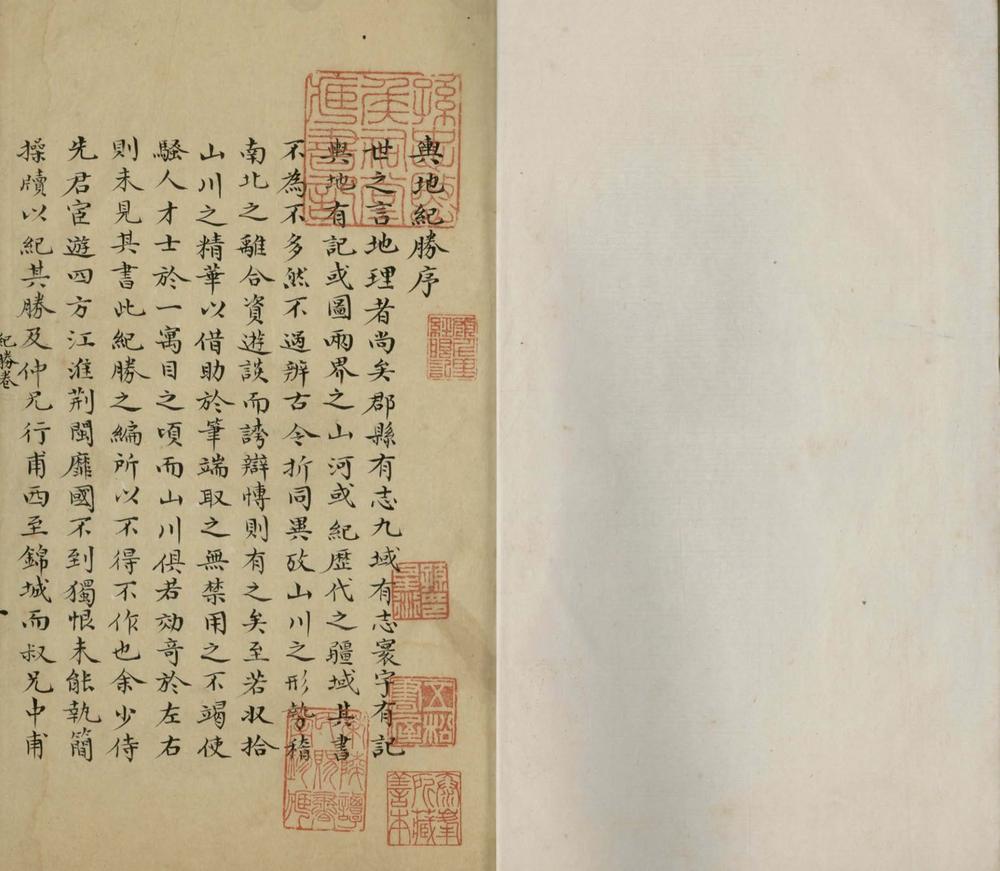 輿地紀勝序
世之言地理者尚矣郡縣有志九域有志寰宇有記
輿地有記或圖兩界之山河或紀歷代之疆域其書
不為不多然不過辨古今折同異攷山川之形勢稽
南北之離合資遊談而誇辯博則有之矣至若收拾
山川之精華以借助於筆端取之無禁用之不竭使
騷人才士於一寓目之頃而山川俱若効奇於左右
則未見其書此紀勝之編所以不得不作也余少侍
先君宦遊四方江淮荆閩靡國不到獨恨未能執簡
操牘以紀其勝及仲兄行甫西至錦城而叔兄中甫
紀勝卷
五松書屋